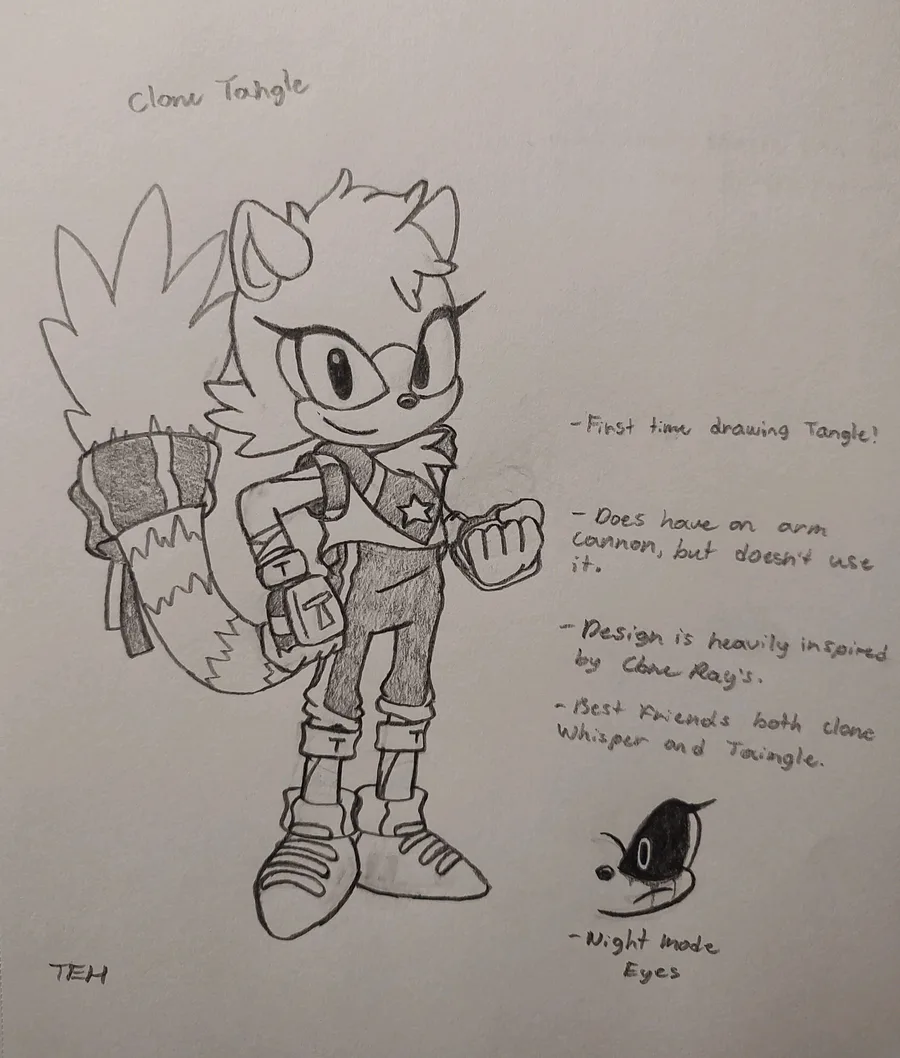 Clone Tangle
-First time drawing Tangle!
- Does have an arm
cannon, but doesn't use
it.
- Design is heavily inspired
by Clone Ray's.
- Best Friends both clone
Whisper and Taingle.
T
T
T
T
-Night mode
Eyes
TEH